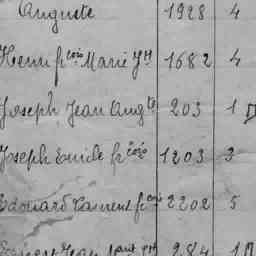 Auguste 1928 4
Henri frçois Marie Jph 1682 4
Joseph Jean Augte 203 1
Joseph Emile frçois 1203 3
Edouard Laurent frçois 2202 5
Ernest Jean 284 1